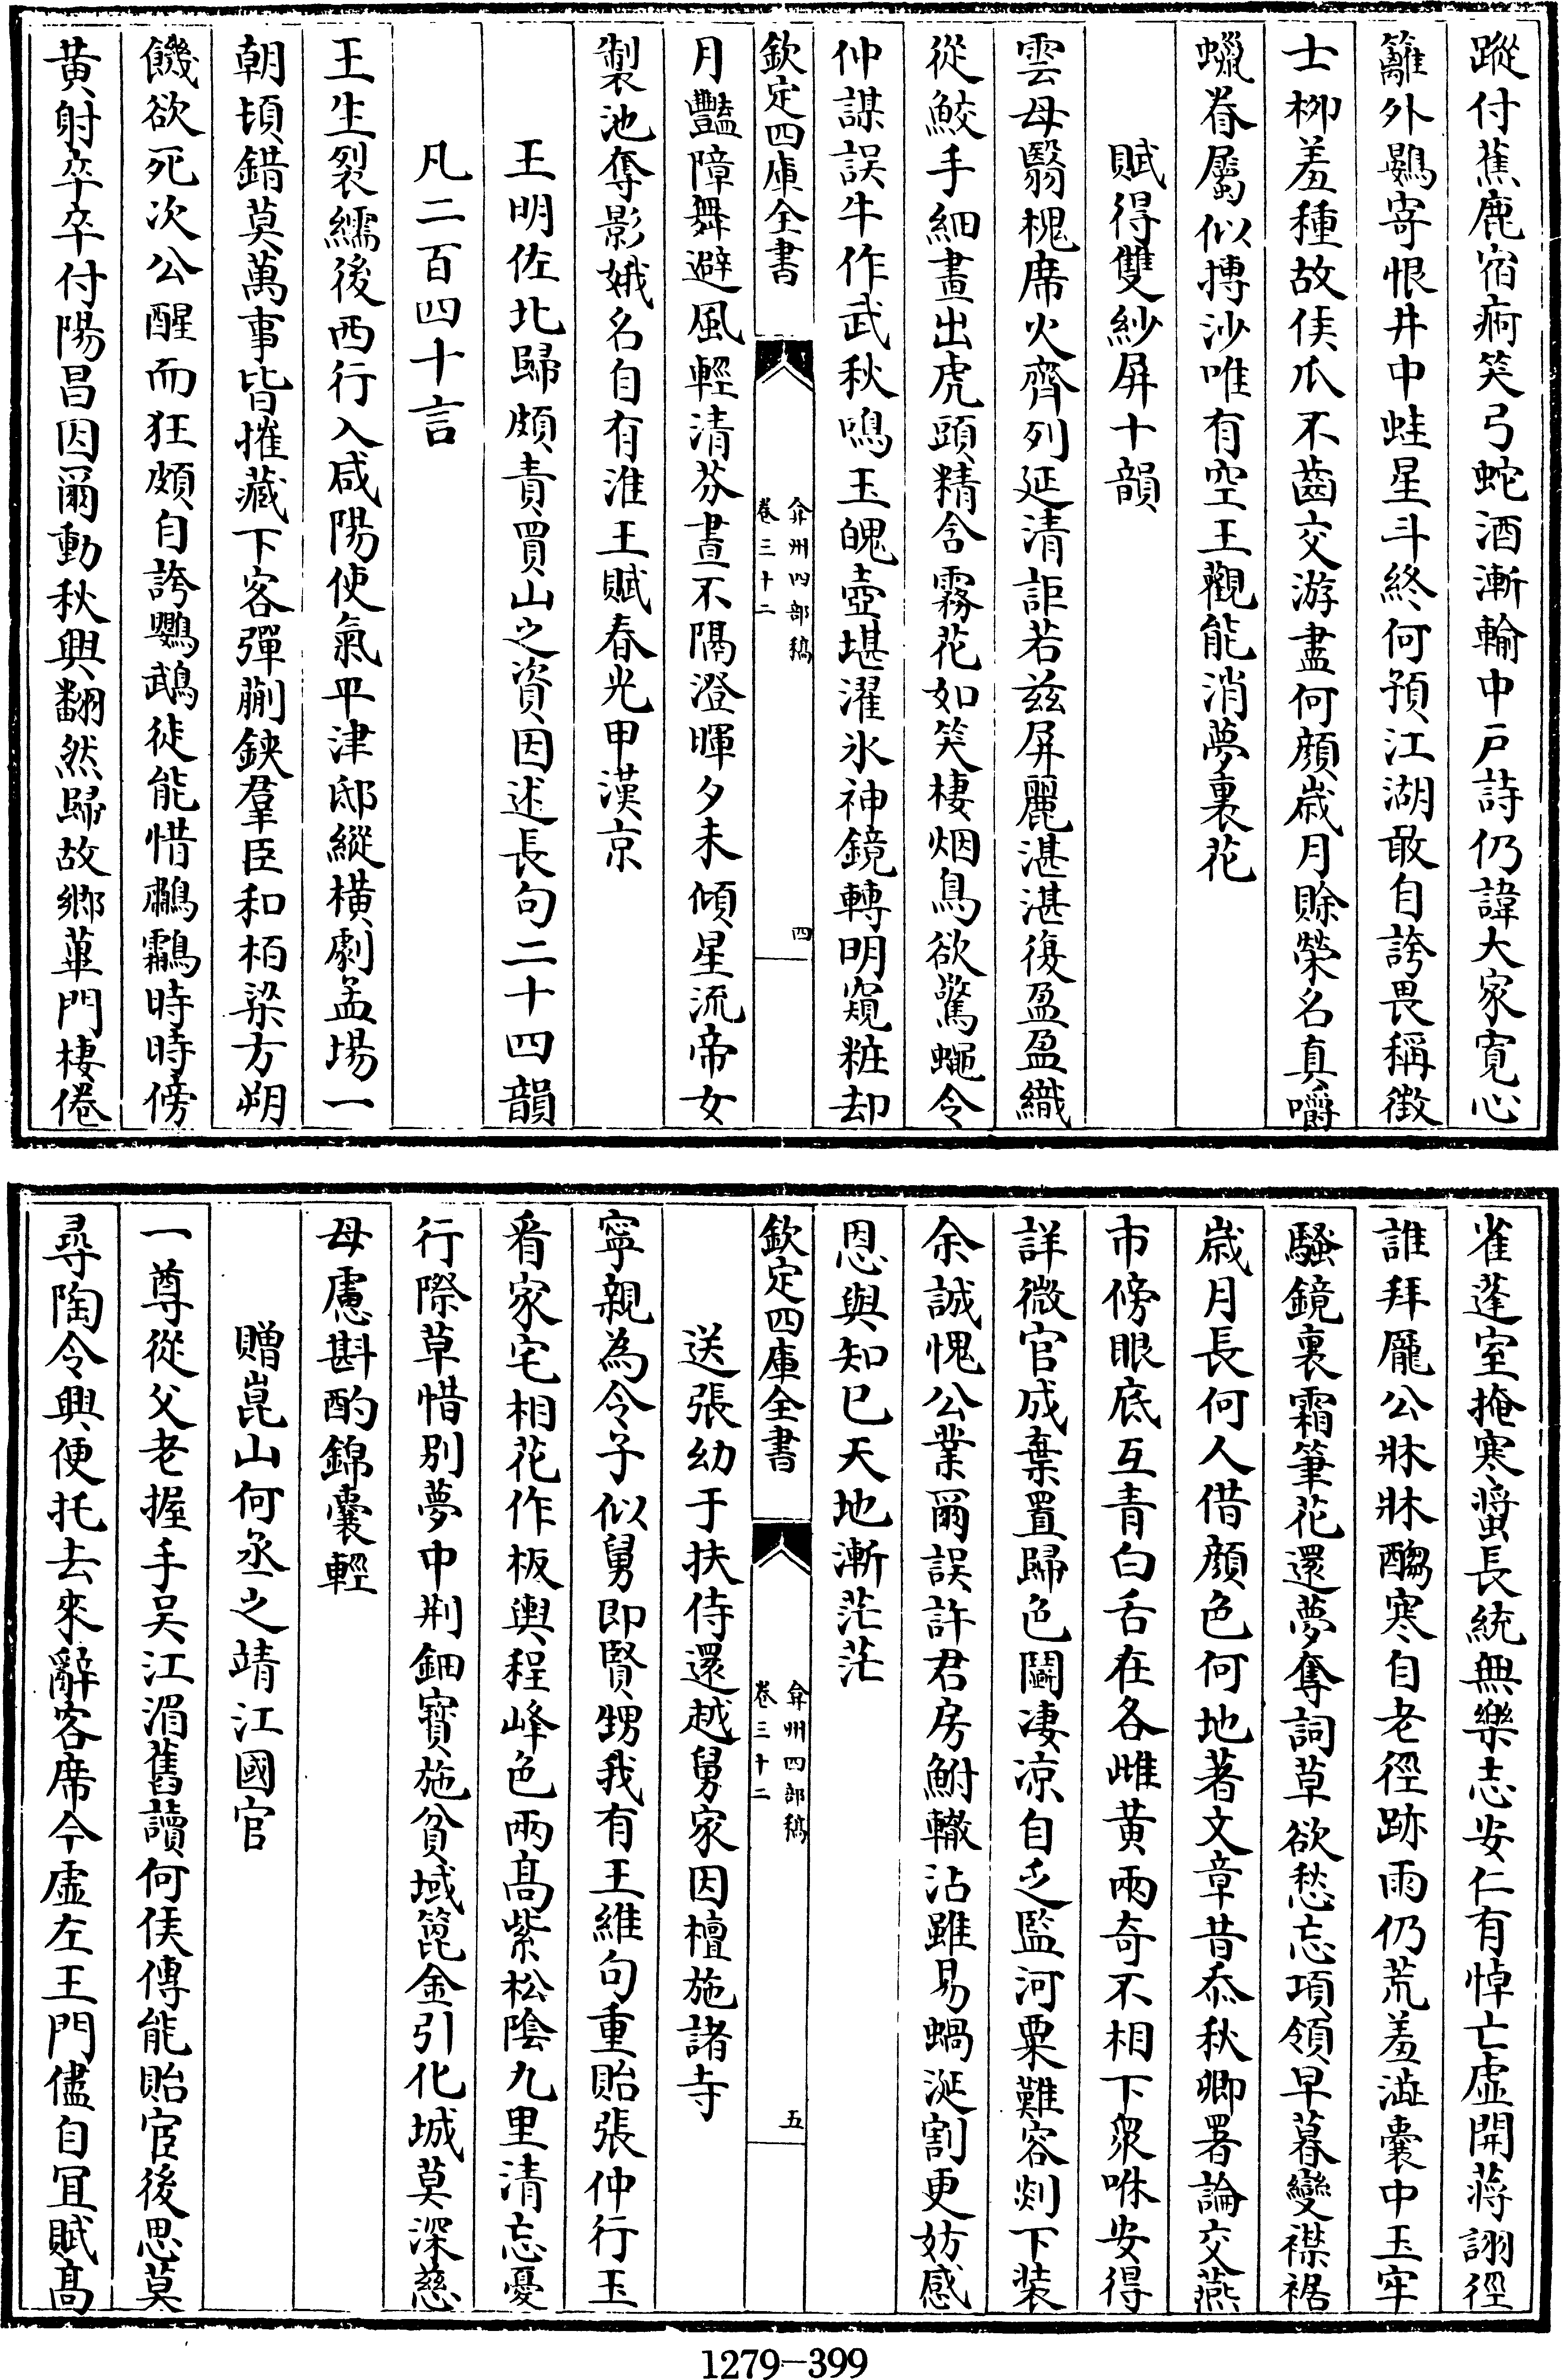 蹤付蕉鹿宿痾笑弓蛇酒漸輸中戸詩仍諱大家寛心
籬外鷃寄恨井中蛙星斗終何預江湖敢自誇畏稱徴
士柳羞種故侯瓜不齒交游盡何顔歳月賒榮名真嚼
蠟眷屬似摶沙唯有空王觀能消夢裏花
賦得雙紗屏十韻
雲母翳槐席火齊列延清詎若兹屏麗湛湛復盈盈織
從鮫手細畫出虎頭精含霧花如笑棲烟鳥欲驚蠅令
仲謀誤牛作武秋鳴玉魄壺堪濯氷神鏡轉明窺粧却
欽定四庫全書
弇州四部稿
卷三十二
四
月豔障舞避風輕清芬晝不隔澄暉夕未傾星流帝女
製池奪影娥名自有淮王賦春光甲漢京
王明佐北歸頗責買山之資因述長句二十四韻
凡二百四十言
王生裂繻後西行入咸陽使氣平津邸縱橫劇孟場一
朝頓錯莫萬事皆摧藏下客彈蒯鋏羣臣和栢梁方朔
饑欲死次公醒而狂頗自誇鸚鵡徒能惜鷫鸘時時傍
黄射卒卒付陽昌因爾動秋興翻然歸故鄉蓽門棲倦
雀蓬室掩寒螿長統無樂志安仁有悼亡虛開蔣詡徑
誰拜龎公牀牀醪寒自老徑跡雨仍荒羞澁囊中玉牢
騷鏡裏霜筆花還夢奪詞草欲愁忘項領早暮變襟裾
歳月長何人借顔色何地著文章昔忝秋卿署論交燕
市傍眼底互青白舌在各雌黄兩奇不相下衆咻安得
詳微官成棄置歸色鬭凄凉自乏監河粟難容剡下装
余誠愧公業爾誤許君房鮒轍沾雖易蝸涎割更妨感
恩與知已天地漸茫茫
欽定四庫全書
弇州四部稿
卷三十二
五
送張幼于扶侍還越舅家因檀施諸寺
寧親為令子似舅即賢甥我有王維句重貽張仲行玉
看家宅相花作板輿程峰色兩髙紫松陰九里清忘憂
行際草惜别夢中荆鈿寶施貧域篦金引化城莫深慈
母慮斟酌錦囊輕
贈崑山何丞之靖江國官
一尊從父老握手吴江湄舊讀何侯傳能貽宦後思莫
尋陶令興便托去來辭客席今虛左王門儘自宜賦髙
1279-399